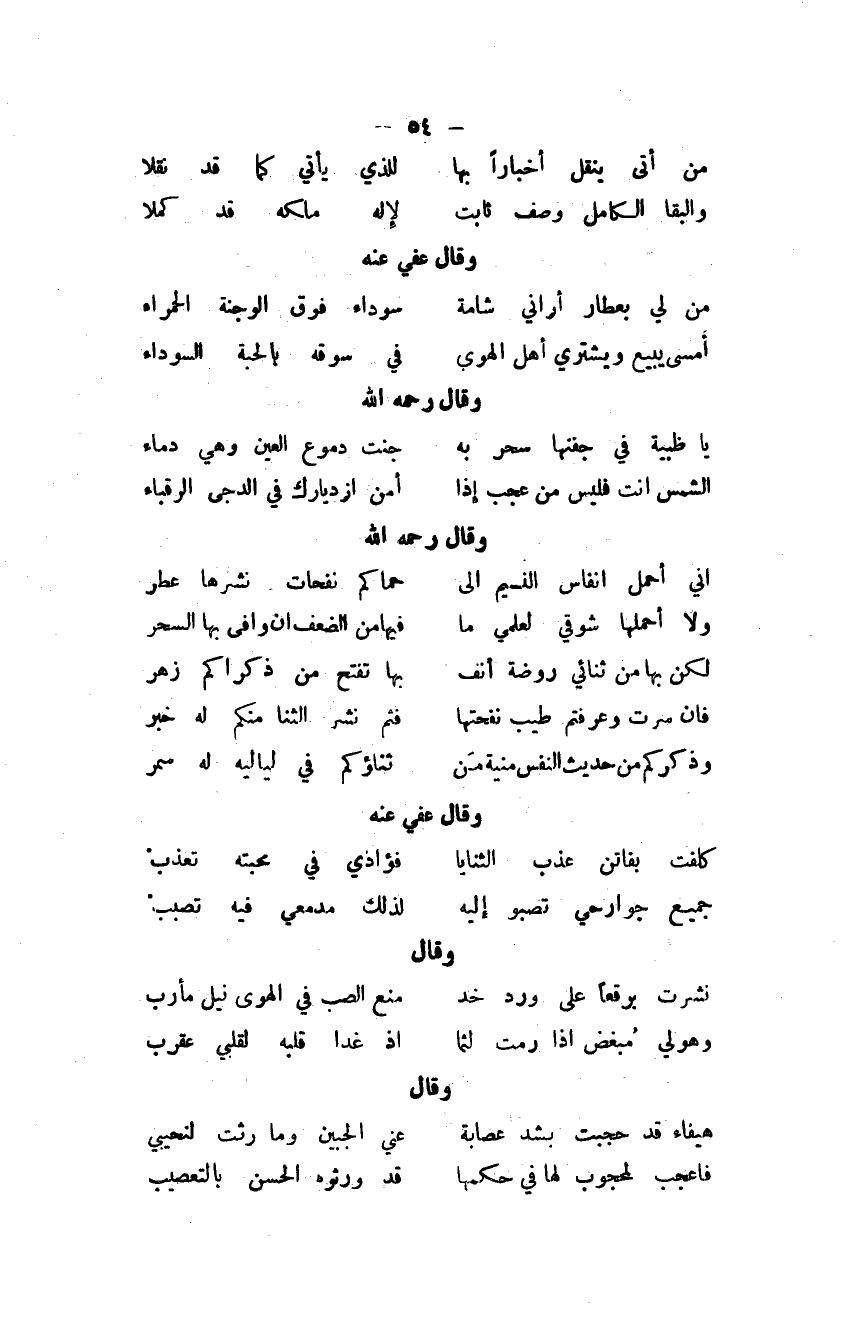 — ٥٤ —
من أتى ينقل أخباراً بها للذي يأتي كما قد نقلا
والبقا الكامل وصف ثابت لإله مالكه قد كملا
وقال عفي عنه
من لي بعطار أراني شامة سوداء فوق الوجنة الحمراء
أمسى يبيع ويشتري أهل الهوى في سوقه بالحبة السوداء
وقال رحمه الله
يا ظبية في جفنها سحر به جنت دموع العين وهي دماء
الشمس انت فليس من عجب إذا أمن ازديارك في الدجى الرقباء
وقال رحمه الله
اني أحمل انفاس النسيم الى حماكم نفحات نشرها عطر
ولا أحملها شوقي لعلمي ما فيها من الضعف ان وافى بها السحر
لكن بها من ثنائي روضة أنف بها تفتح من ذكراكم زهر
فان سرت وعرفتم طيب نفحتها فثم نشر الثنا منكم له خبر
وذكركم من حديث النفس منية مَن ثناؤكم في لياليه له سمر
وقال عفي عنه
كلفت بفاتن عذب الثنايا فؤادي في محبته تعذبْ
جميع جوارحي تصبو إليه لذلك مدمعي فيه تصببْ
وقال
نشرت برقعاً على ورد خد منع الصب في الهوى نيل مأرب
وهولي مُبغض اذا رمت لثما اذ غدا قلبه لقلبي عقرب
وقال
هيفاء قد حجبت بشد عصابة عني الجبين وما رثت لنحيبي
فاعجب لمحجوب لها في حكمها قد ورثوه الحسن بالتعصيب